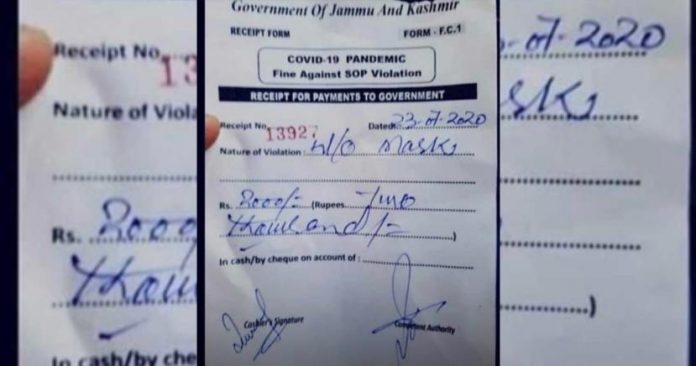 Government Of Jammu And Kashmir
RECEIPT FORM FORM - F.C.1
COVID-19 PANDEMIC
Fine Against SOP Violation
RECEIPT FOR PAYMENTS TO GOVERNMENT
Receipt No. 13927 Dated: 23-07-2020
Nature of Violation: W/o Mask
Rs. 2000/- (Rupees Two
thousand/- )
In cash/by cheque on account of :
Cashier's Signature Competent Authority
Receipt No.
13
Nature of Viola
Rs. 2000
thou
In cash/by cheque
-07-2020
ask
)